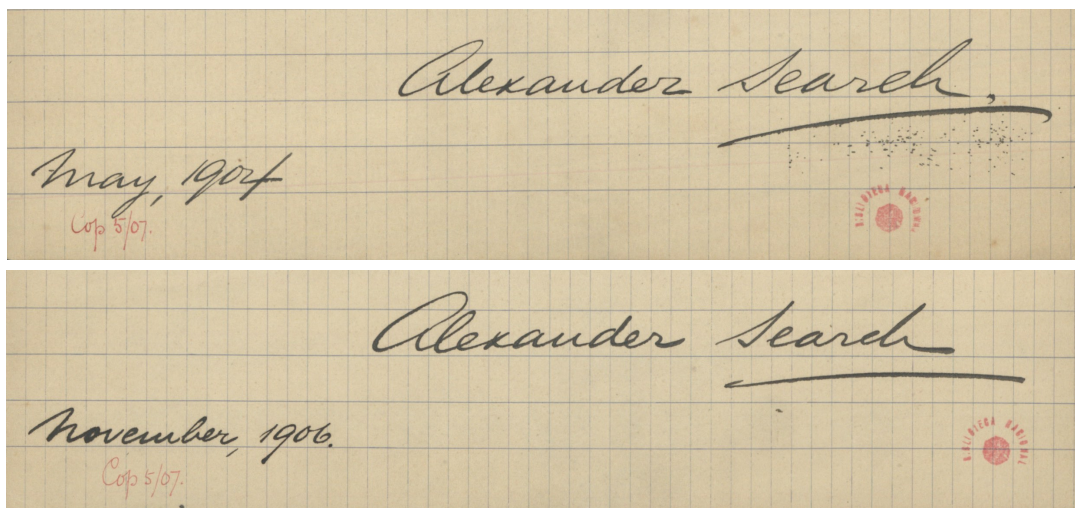 Alexander Search.
May, 1904
Cop 5/07.
BIBLIOTECA NACIONAL
Alexander Search
November, 1906.
Cop 5/07.
BIBLIOTECA NACIONAL